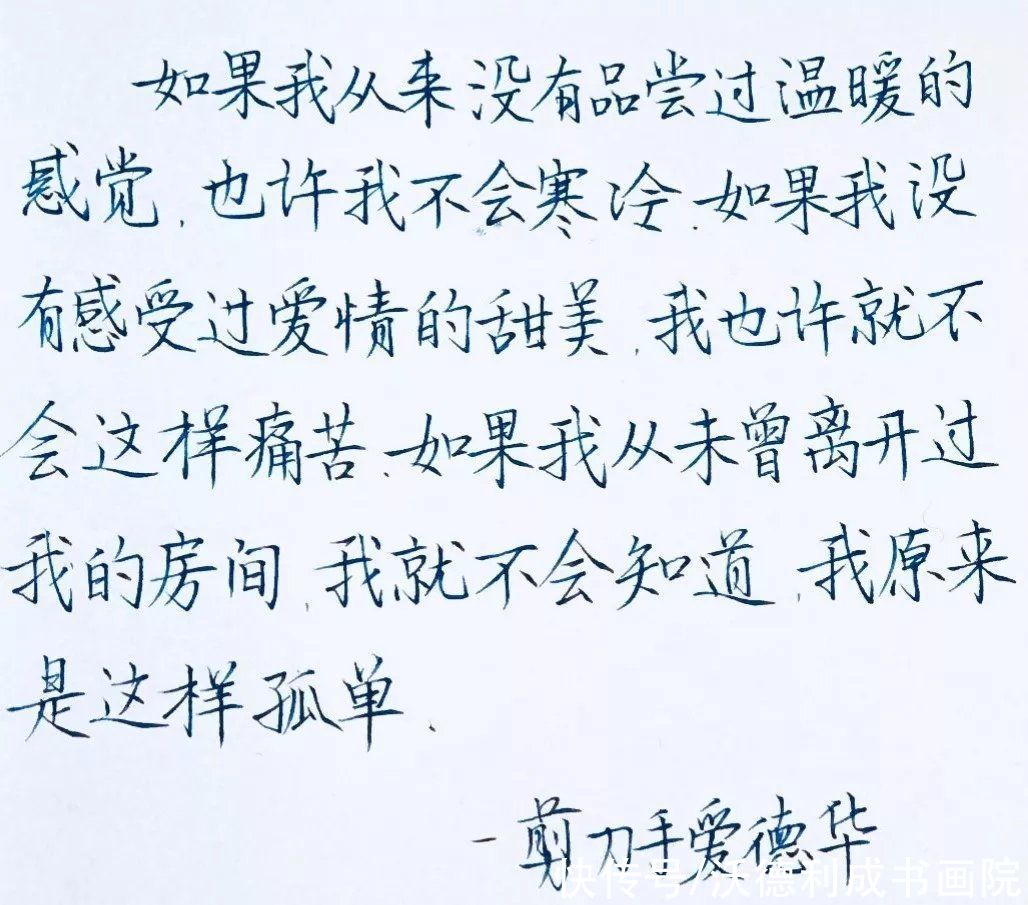 如果我从来没有品尝过温暖的
感觉,也许我不会寒冷.如果我没
有感受过爱情的甜美,我也许就不
会这样痛苦.如果我从未曾离开过
我的房间,我就不会知道,我原来
是这样孤单.
-剪刀手爱德华
快传号/沃德利成书画院